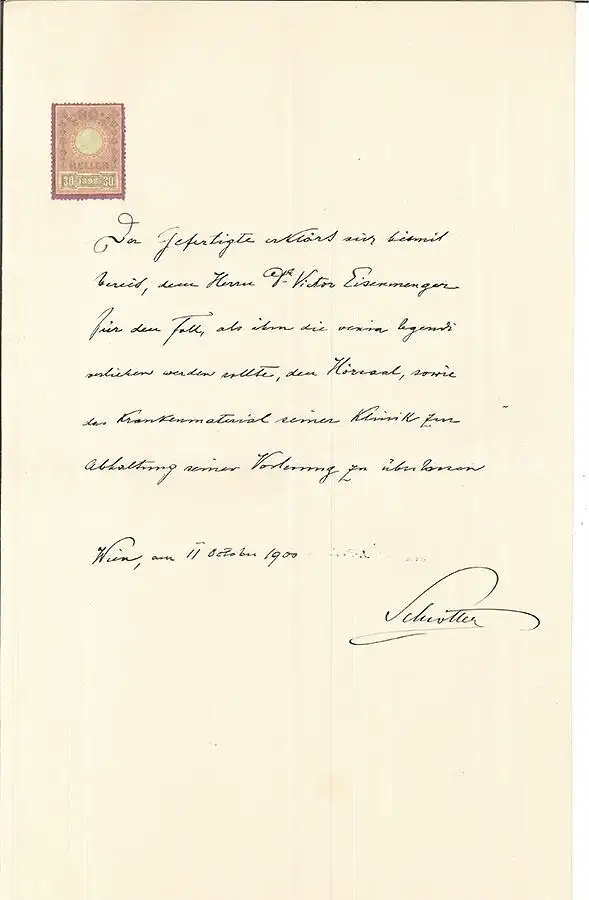 30
HELLER
30 1898 30
Der Gefertigte erklärt sich hiemit
bereit, dem Herrn Dr. Victor Eisenmenger
für den Fall, als ihm die venia legendi
verliehen werden sollte, den Hörsaal, sowie
das Krankenmaterial seiner Klinik zur
Abhaltung seiner Vorlesung zu überlassen
Wien, am 11 October 1900
Schrötter